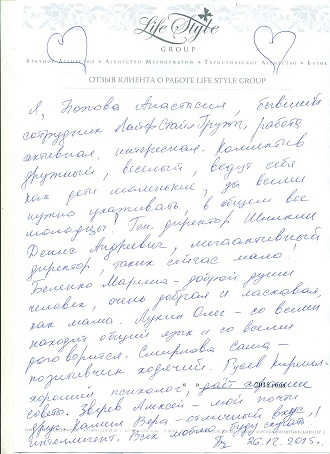 Life Style
GROUP
Брачное Агентство • Агентство Мероприятий • Туристическое Агентство •
ОТЗЫВ КЛИЕНТА О РАБОТЕ LIFE STYLE GROUP
Я, Попова Анастасия, бывший
сотрудник Лайф Стайл Групп, работа
активная, интересная. Коллектив
дружный, веселый, ведут себя
как дети маленькие, за всеми
нужно ухаживать, в общем все
молодцы! Ген. директор
Денис Андреевич, мегаактивный
директор, таких сейчас мало!
Беленко Марина - доброй души
человек, очень добрая и ласковая,
как мама. Лукин Олег - со всеми
находит общий язык и со всеми
договорится. Смирнова Саша -
позитивчик ходячий. Гусев Кирилл -
хороший психолог, даёт хорошие
совет. Зверев Алексей - мой почти
друг. Вера - отличный вкус,
интеллигент. Всех люблю, буду скучать!!
26.12.2015г.